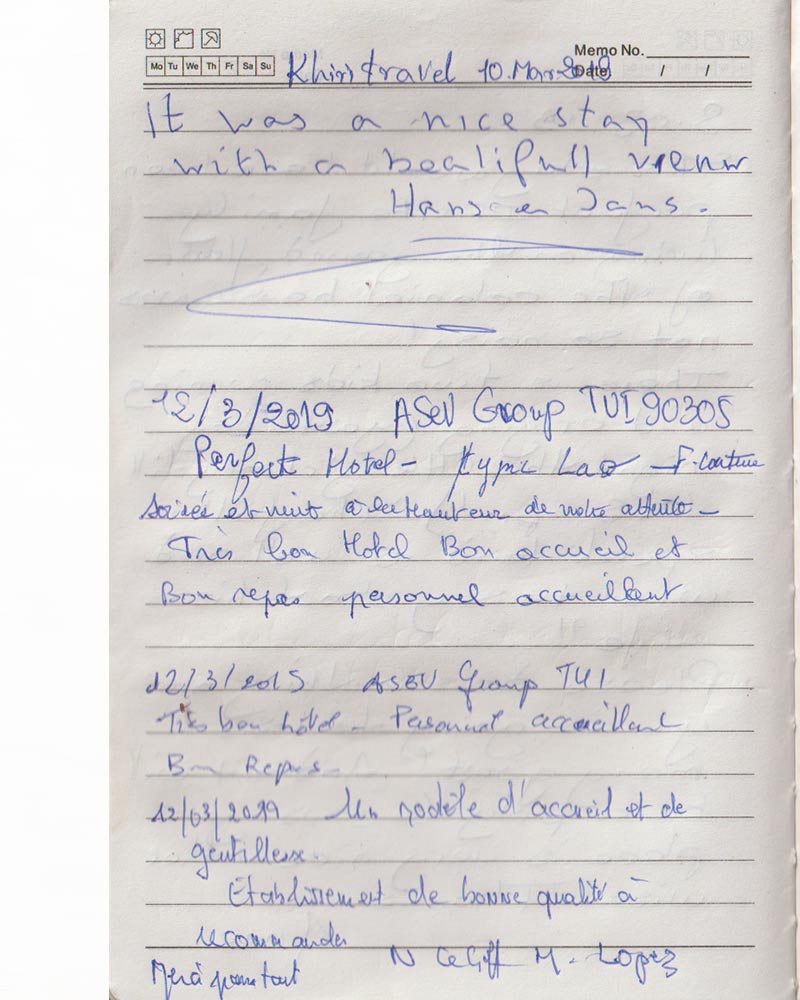 Memo No.
Mo Tu We Th Fr Sa Su
Khiri travel 10. Mar 2018
Date: / /
It was a nice stay
with a bealifull vienw
Hans en Jans.
12/3/2019 ASEV Group TUI 90305
Perfect Hotel - typic Lao -
Soirée et nuit à la Hauteur de notre attente -
Très bon Hotel Bon accueil et
Bon repas personnel accueillent
12/3/2015 ASEV Group TUI
Très bon hôtel - Personnel accueillant
Bon Repas.
12/03/2019 Un modèle d'accueil et de
gentillesse.
Etablissement de bonne qualité à
recommander
N M. Lopez